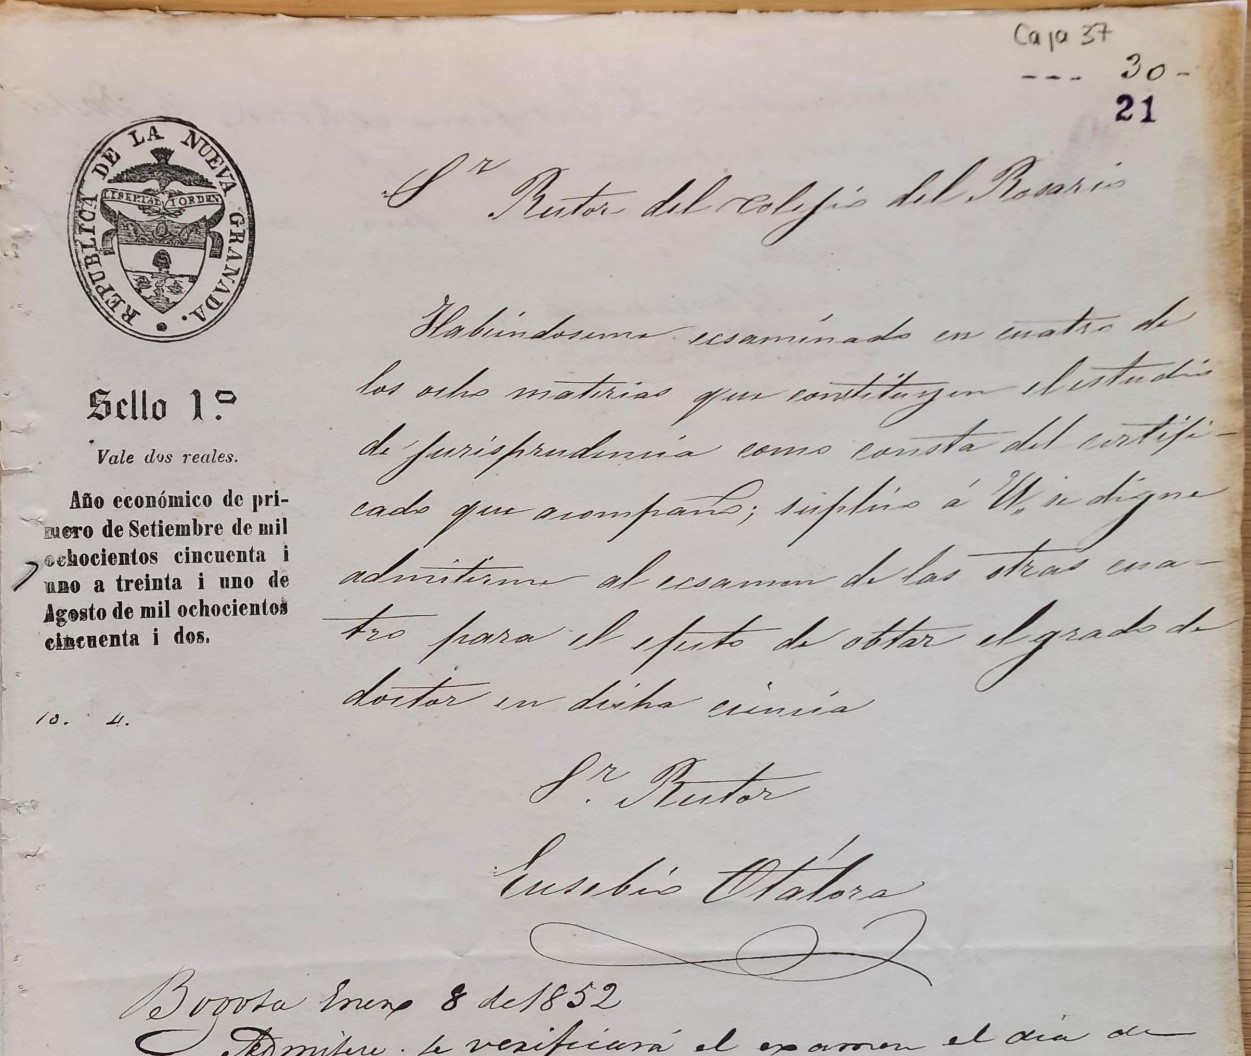 Caja 37
--- 30-
21
REPUBLICA DE LA NUEVA GRANADA.
LIBERTAD I ORDEN
Sello 1.º
Vale dos reales.
Año económico de pri-
mero de Setiembre de mil
ochocientos cincuenta i
uno a treinta i uno de
Agosto de mil ochocientos
cincuenta i dos.
10. 4.
Sr Rector del colejio del Rosario
Habiéndoseme ecsaminado en cuatro de
las ocho materias que constituyen el estudio
de jurisprudencia como consta del certifi-
cado que acompaño; suplico á U. se digne
admitirme al ecsamen de las otras cua-
tro para el efecto de obtar el grado de
doctor en dicha ciencia
Sr. Rector
Eusebio Otálora
Bogotá Enero 8 de 1852
Admitese. Se verificará el examen el dia de